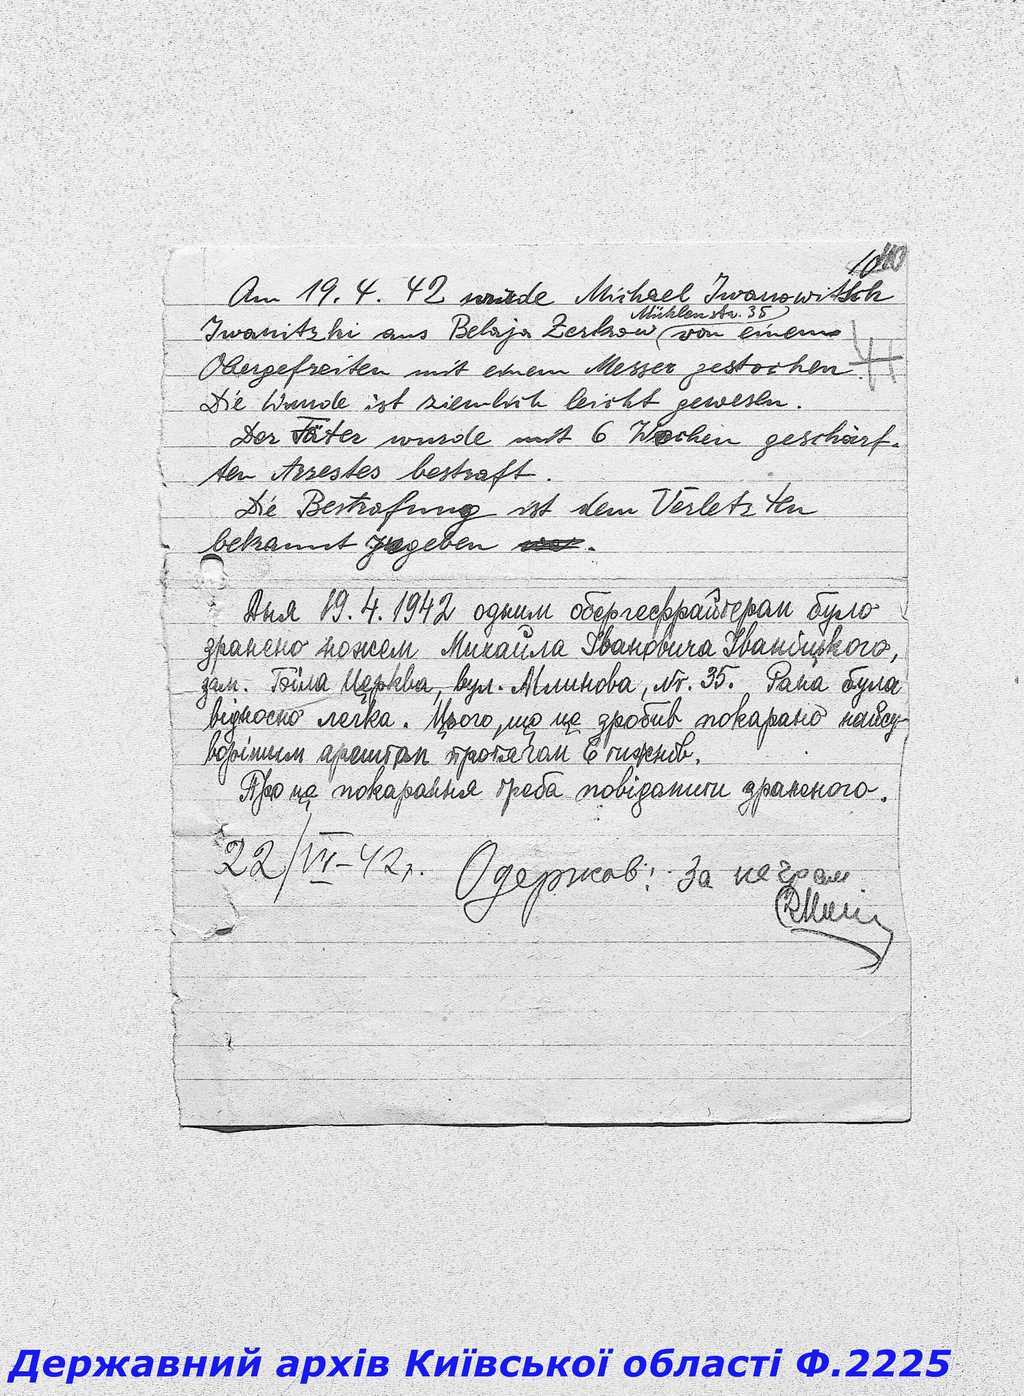 40
Am 19. 4. 42 wurde Michael Iwanowitsch
Mühlenstr. 35
Iwanitzki aus Belaja Zerkow (von einem
Obergefreiten mit einem Messer gestochen.
Die Wunde ist ziemlich leicht gewesen.
Der Täter wurde mit 6 Wochen geschärf-
ten Arrestes bestraft.
Die Bestrafung ist dem Verletzten
bekannt zugeben.
Дня 19. 4. 1942 одним обергефрайтерам було
зранено ножем Михайла Івановича Іваніцького,
зам. Біла Церква, вул. Млинова, №. 35. Рана була
відносно легка. Цього, що це зробив покарано найсу-
ворішим арештам протягам 6 тижнів.
Про це покарання треба повідамити зраненого.
22/VI-42г. Одержав: За
Державний архів Київської області Ф.2225